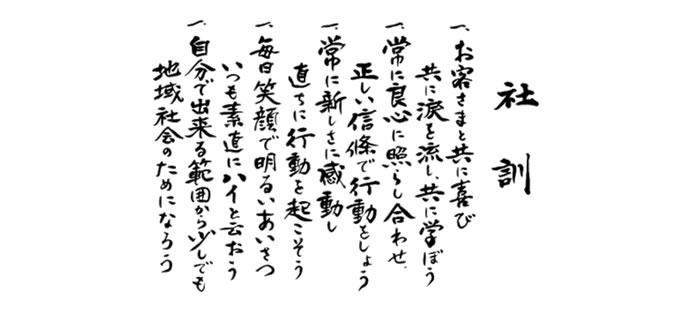 社訓
一、お客さまと共に喜び
共に涙を流し、共に学ぼう
一、常に良心に照らし合わせ、
正しい信條で行動をしよう
一、常に新しさに感動し
直ちに行動を起こそう
一、毎日笑顔で明るいあいさつ
いつも素直にハイと云おう
一、自分で出来る範囲から少しでも
地域社会のためになろう